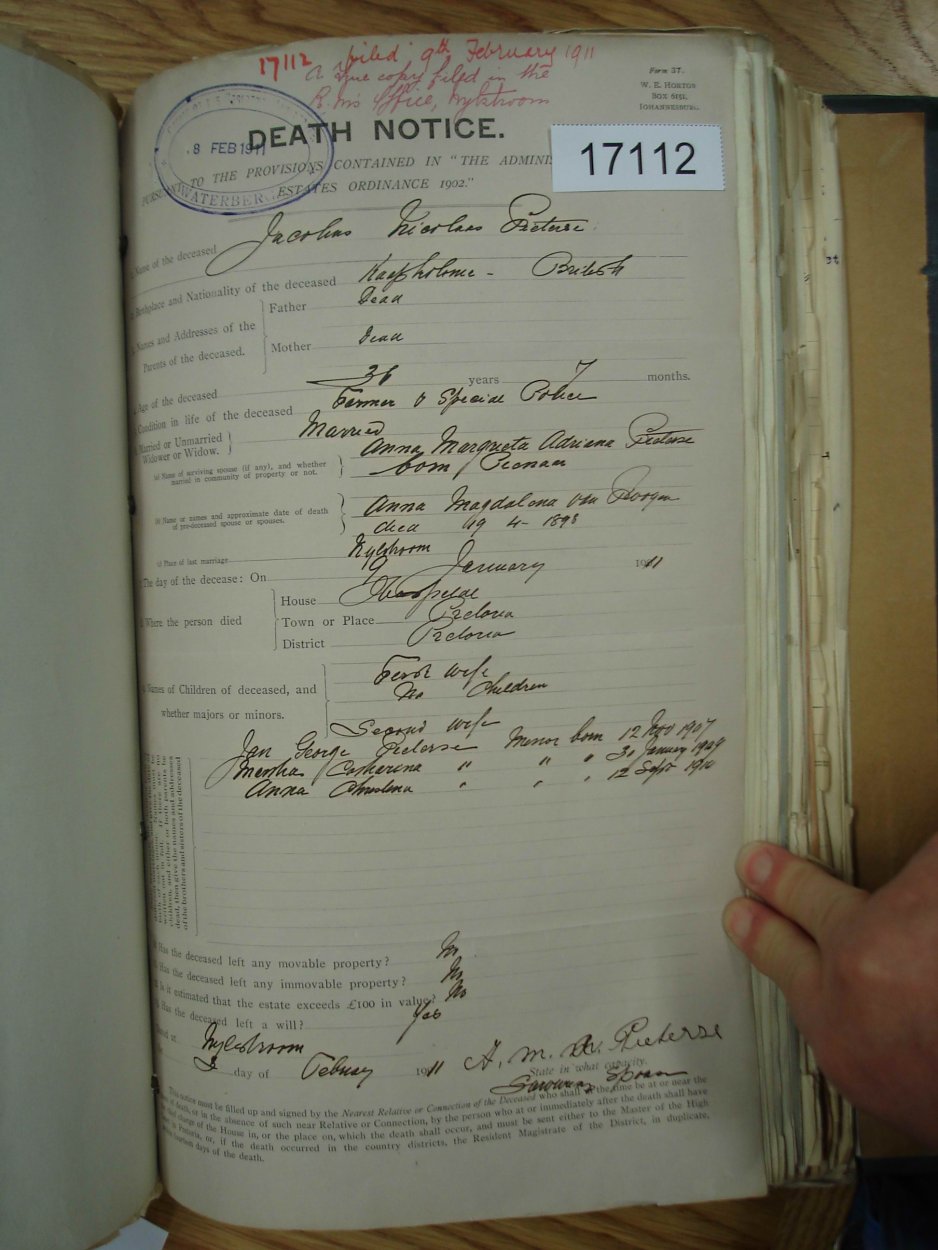 17112 filed 9th February 1911
A true copy filed in the
R. M's Office, Nylstroom
Form 37.
W. E. HORTOR
BOX 6151,
JOHANNESBURG.
8 FEB 1911
WATERBERG
DEATH NOTICE.
17112
PURSUANT TO THE PROVISIONS CONTAINED IN "THE ADMINIS
ESTATES ORDINANCE 1902."
Name of the deceased Jacobus Nicolaas Pieterse
Birthplace and Nationality of the deceased Kaapkolonie - British
Names and Addresses of the Parents of the deceased.
Father Dead
Mother Dead
Age of the deceased 36 years 7 months.
Condition in life of the deceased Farmer & Special Police
Married or Unmarried Widower or Widow. Married
(a) Name of surviving spouse (if any), and whether married in community of property or not.
Anna Margrieta Adriana Pieterse
born Pienaar
(b) Name or names and approximate date of death of pre-deceased spouse or spouses.
Anna Magdalena van
died 4-1898
(c) Place of last marriage Nylstroom
The day of the decease: On 9 January 1911
Where the person died
House Hospitaal
Town or Place Pretoria
District Pretoria
Names of Children of deceased, and
whether majors or minors.
First wife
No Children
Second wife
Jan George Pieterse Minor born 12 Nov 1907
Martha Catharina " " " January 1909
Anna Christina " " " 12 Sept 1910
dead, then give the names and addresses
of the brothers and sisters of the deceased
Has the deceased left any movable property? No
Has the deceased left any immovable property? No
Is it estimated that the estate exceeds £100 in value? No
Has the deceased left a will? Yes
Nylstroom
3 day of February 1911
A. M. A. Pieterse
State in what capacity.
Surviving Spouse
This notice must be filled up and signed by the Nearest Relative or Connection of the Deceased who shall at the time be at or near the
of death, or in the absence of such near Relative or Connection, by the person who at or immediately after the death shall have
charge of the House in, or the place on, which the death shall occur, and must be sent either to the Master of the High
Pretoria, or, if the death occurred in the country districts, the Resident Magistrate of the District, in duplicate,
fourteen days of the death.